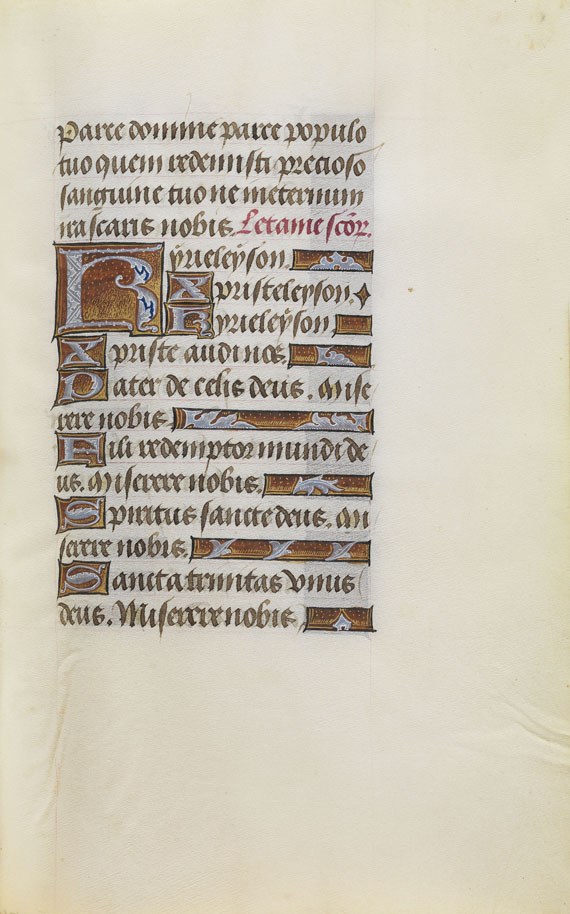 Parce domine parce populo
tuo quem redemisti precioso
sanguine tuo ne ineternum
irascaris nobis. Letanie scõr.
Kyrieleyson.
Xpristeleyson.
Kyrieleyson
Xpriste audi nos.
Pater de celis deus. Mise
rere nobis.
Fili redemptor mundi de
us. Miserere nobis.
Spiritus sancte deus. Mi
serere nobis.
Sancta trinitas vnus
deus. Miserere nobis.